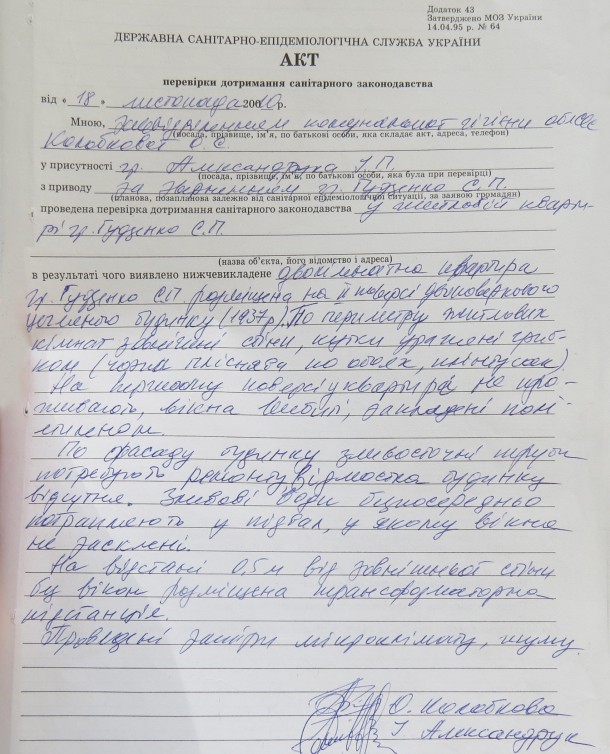 Додаток 43
Затверджено МОЗ України
14.04.95 р. № 64
ДЕРЖАВНА САНІТАРНО-ЕПІДЕМІОЛОГІЧНА СЛУЖБА УКРАЇНИ
АКТ
перевірки дотримання санітарного законодавства
від « 18 » листопада 200 р.
Мною, комунальної гігієни облСЕС
(посада, прізвище, ім'я, по батькові особи, яка складає акт, адреса, телефон)
Колобкової О.Є.
у присутності гр. Александрука І.П.
(посада, прізвище, ім'я, по батькові особи, яка була при перевірці)
з приводу за зверненням гр. Гудзенко С.П.
(планова, позапланова залежно від санітарної епідеміологічної ситуації, за заявою громадян)
проведена перевірка дотримання санітарного законодавства у житловій кварти-
рі гр. Гудзенко С.П.
(назва об'єкта, його відомство і адреса)
в результаті чого виявлено нижчевикладене двокімнатна квартира
гр. Гудзенко С.П. розміщена на ІІ поверсі двоповерхового
цегляного будинку (1937р). По периметру житлових
кімнат зовнішні стіни, кутки уражені гриб-
ком (чорна пліснява по обоях, плінтусах).
На першому поверсі у квартирі не про-
живають, вікна вибиті, закладені полі-
етиленом.
По фасаду будинку зливосточні труби
потребують ремонту. Відмостка будинку
відсутня. Зливові води безпосередньо
потрапляють у підвал, у якому вікна
не засклені.
На відстані 0,5 м від зовнішньої стіни
без вікон розміщена трансформаторна
підстанція.
Проведені заміри мікроклімату, шуму.
О. Колобкова
І Александрук